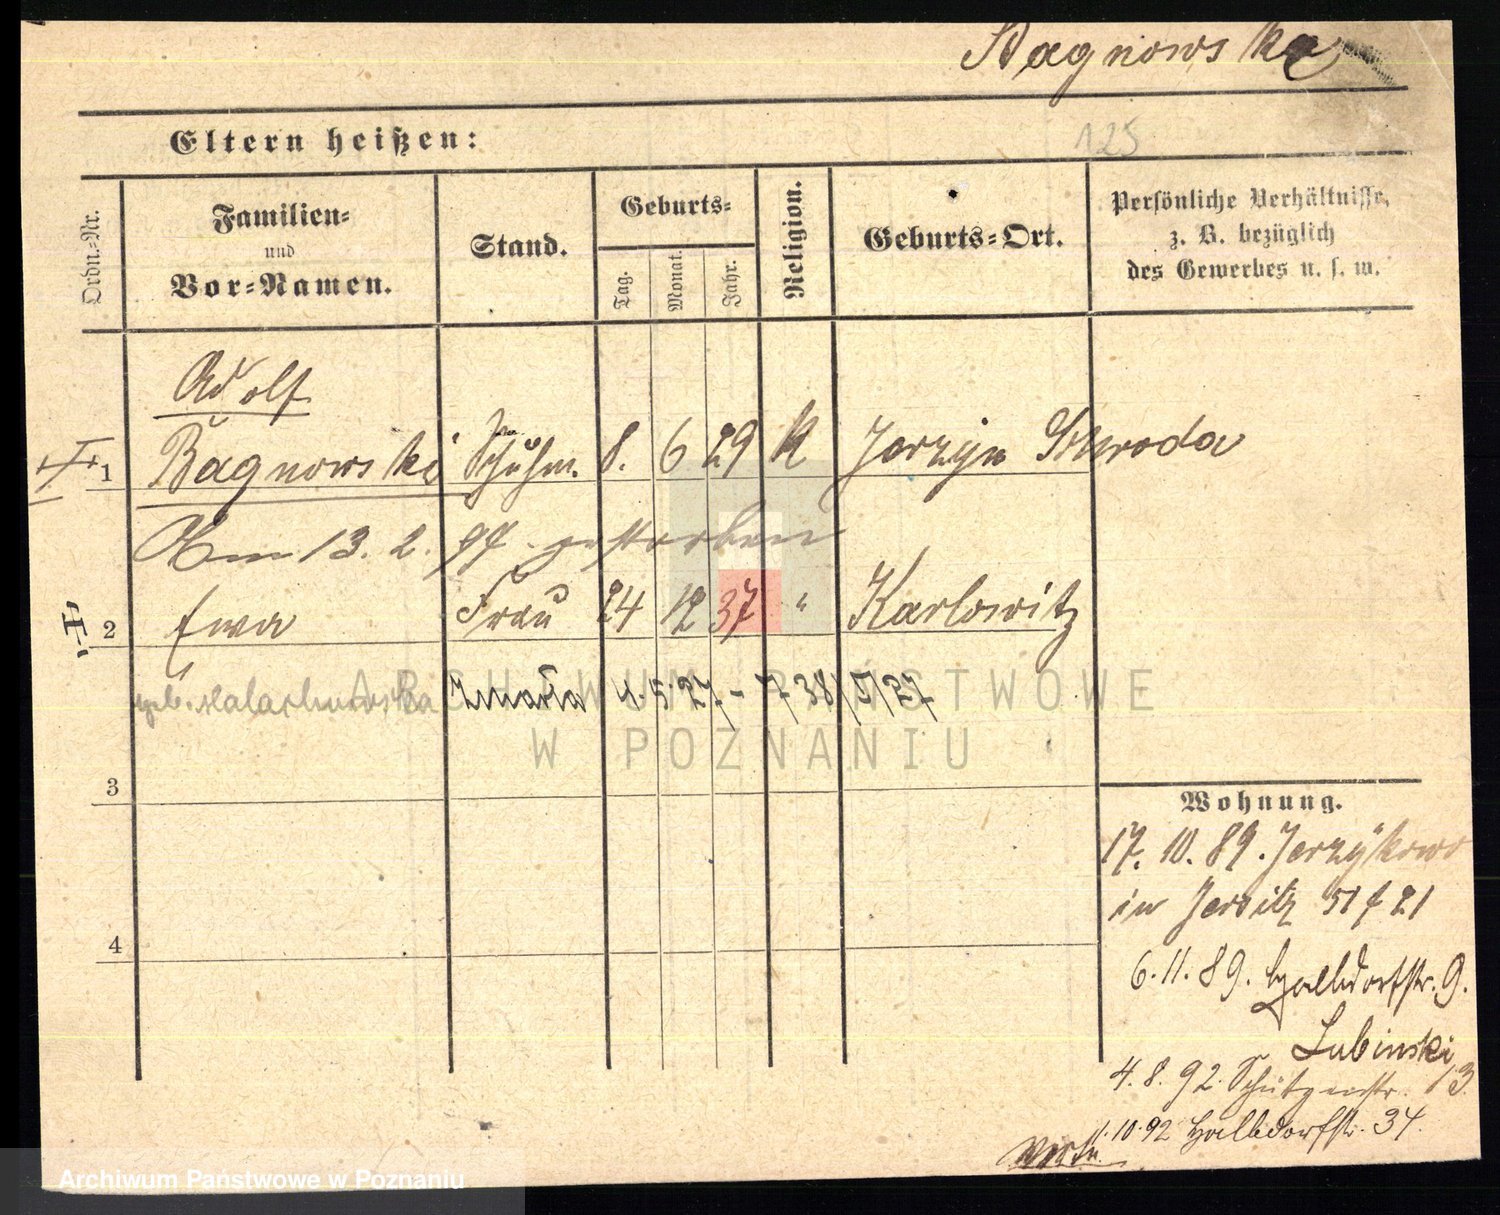 Bagnowska
Eltern heißen:
125
Ordn.-Nr.
Familien-
und
Vor-Namen.
Stand.
Geburts-
Tag.
Monat.
Jahr.
Religion.
Geburts-Ort.
Persönliche Verhältnisse,
z. B. bezüglich
des Gewerbes u. s. w.
Adolf
1 Bagnowski Schuhm. 8. 6 29 K Jerzyn Schroda
Am 13. 2. 97 gestorben
2 Ewa Frau 24 12 37 " Karlowitz
geb. Zmarła 1. 5. 27 -
3
4
Wohnung.
17. 10. 89. Jerzykowo
in Jersitz 51 f 21
6. 11. 89. Halbdorfstr. 9.
Lubinski
4. 8. 92. Schützenstr. 13
1. 10. 92 Halbdorfstr. 34.
ARCHIWUM PAŃSTWOWE
W POZNANIU
Archiwum Państwowe w Poznaniu